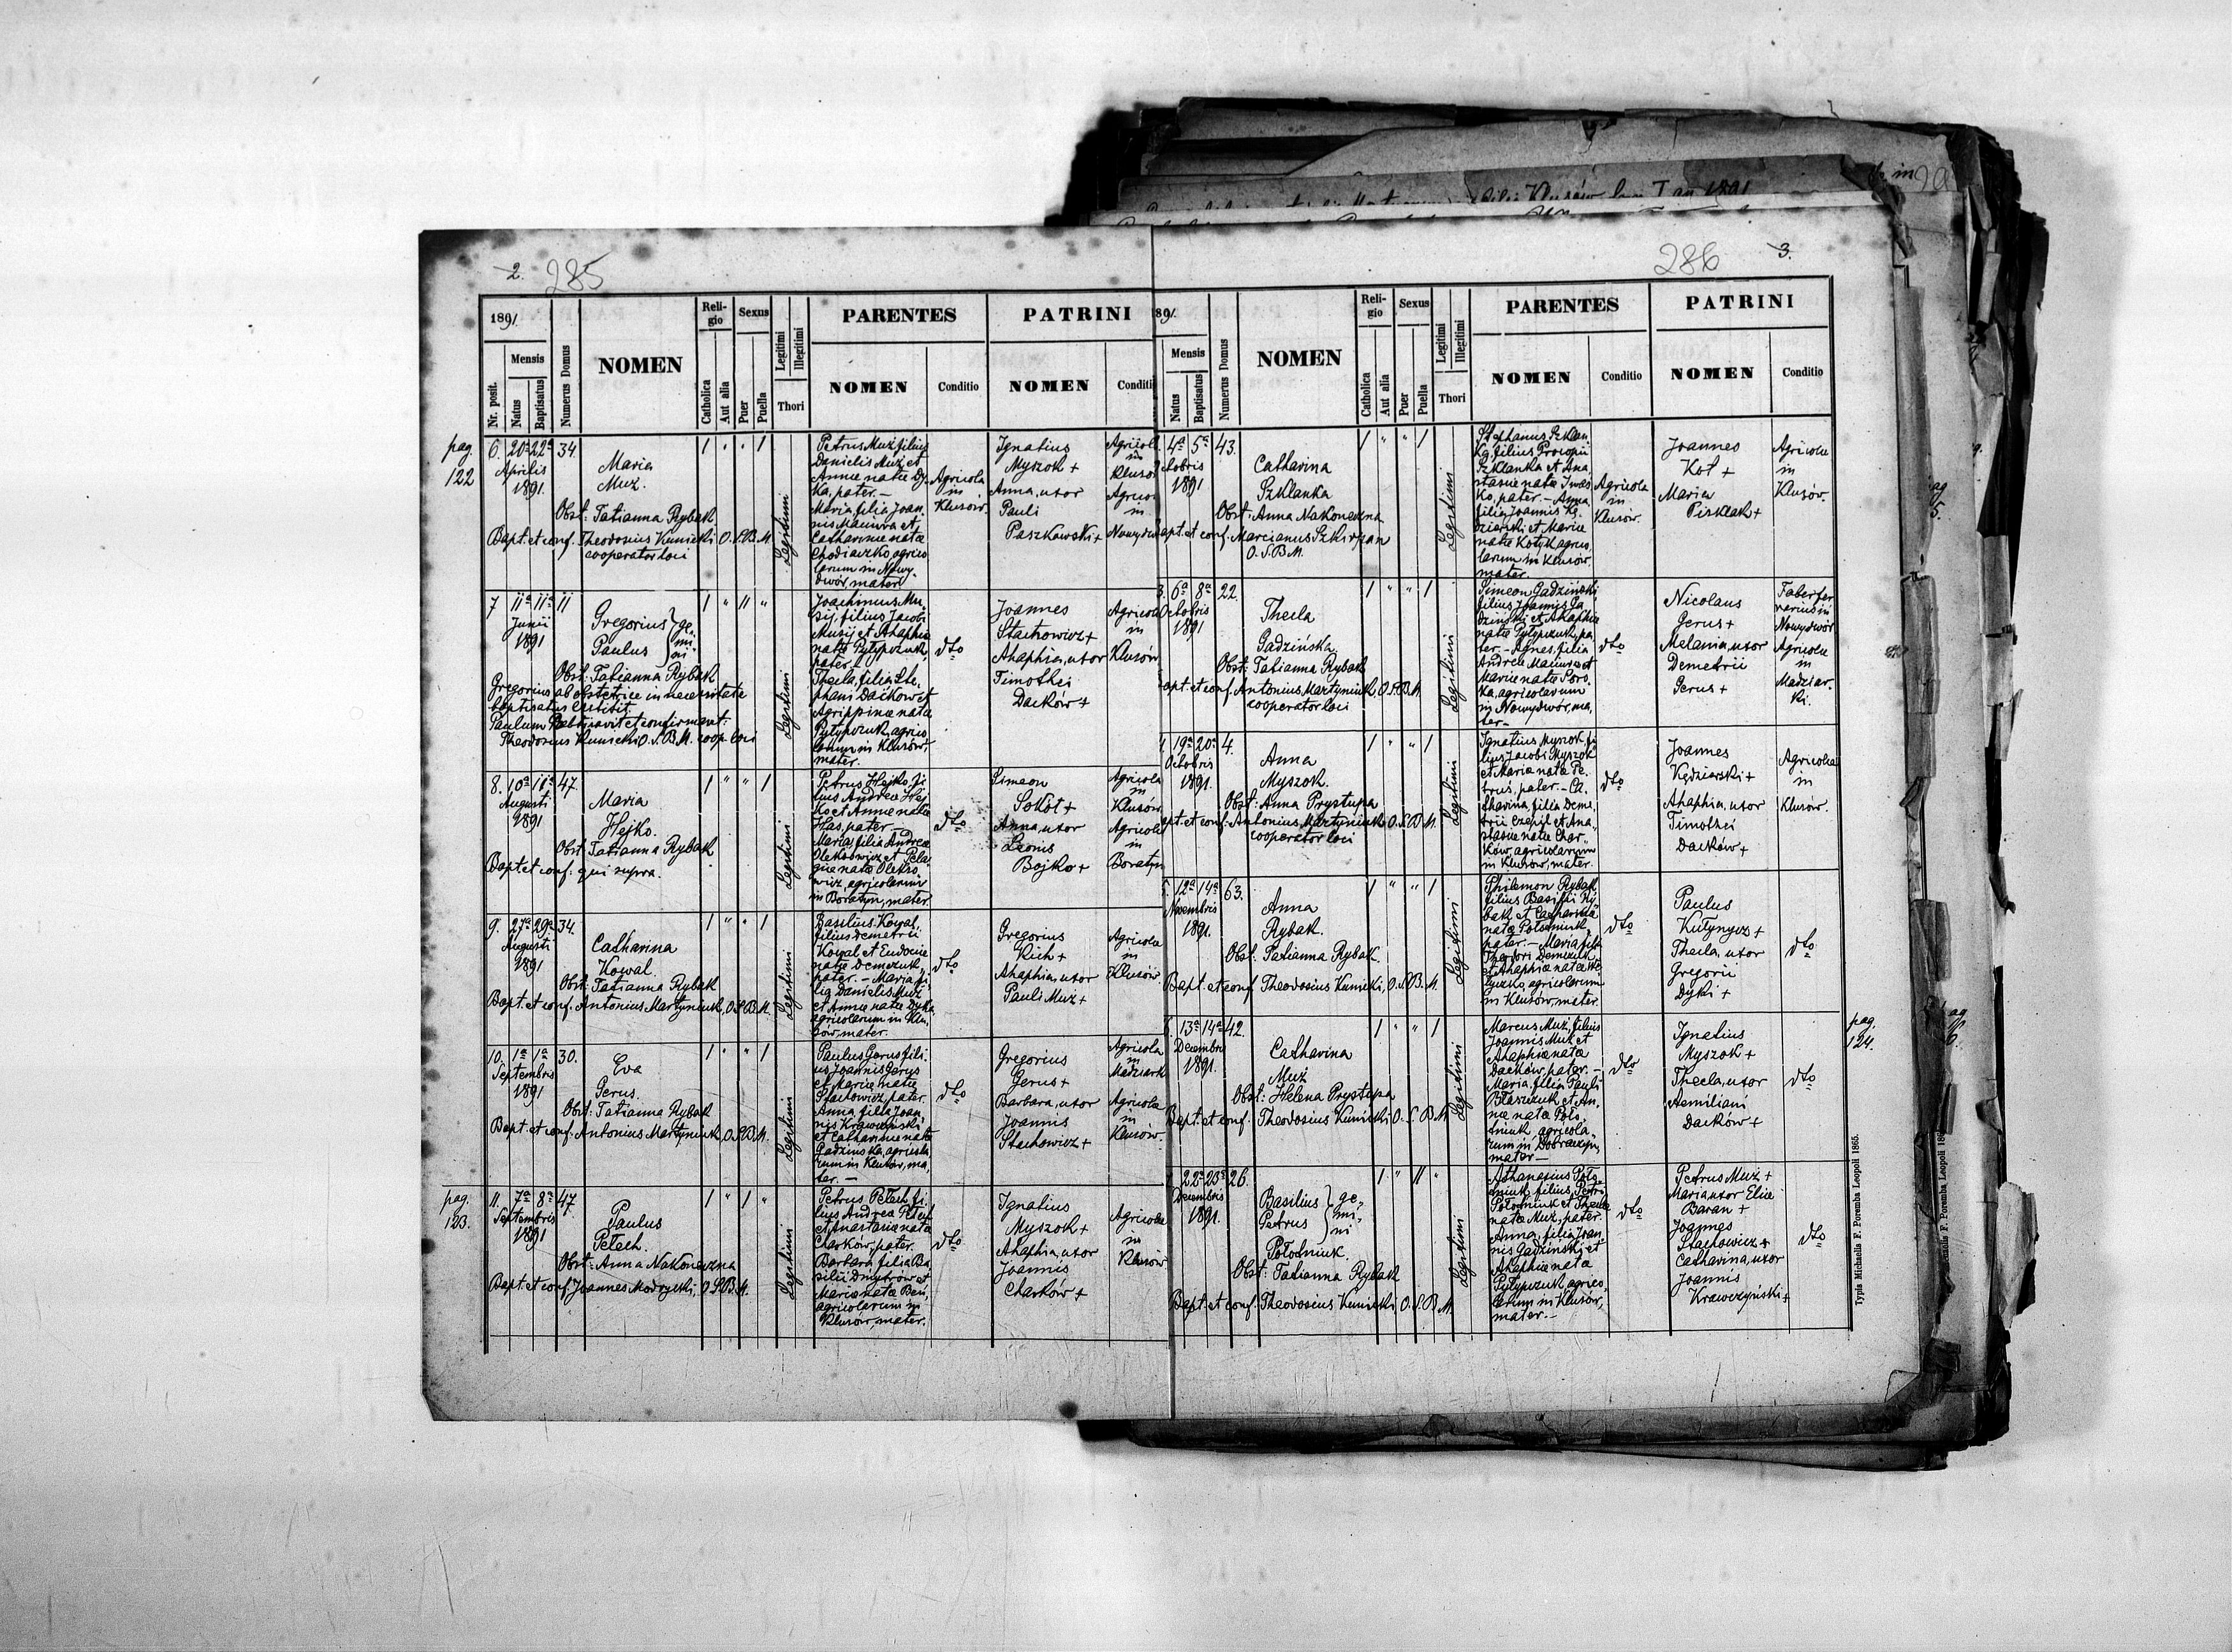 2. 285
1891.
Nr. posit.
Mensis
Natus
Baptisatus
Numerus Domus
NOMEN
Religio
Catholica
Aut alia
Sexus
Puer
Puella
Legitimi
Illegitimi
Thori
PARENTES
NOMEN
Conditio
PATRINI
NOMEN
Conditi
pag.
122
6. 20a 22a 34.
Aprilis
1891.
Maria
Muż.
Obst: Tatianna Rybak
Bapt. et conf. Theodosius Kunicki O.S.B.M.
cooperator loci
Legitimi
Petrus Muż filius
Danielis Muż et
Annae natae Dy-
ka, pater.-
Maria, filia Joan-
nis Maciura et
Catharinae natae
agrico
larum in Nowy-
dwór, mater
Agricola
in
Klusów.
Ignatius
Myszok +
Anna, uxor
Pauli
Paszkowski +
Agricol
in
Klusó
Agrico
in
Nowydw
7 11a 11a 11
Junii
1891
Gregorius
Paulus
ge-
mi-
ni
Obst: Tatianna Rybak
Gregorius ab obstetrice in necessitate
baptisatus exstitit.
Paulum baptisavit et confirmavit:
Theodosius Kunicki O.S.B.M. coop loci
Legitimi
Joachimus Mu-
sij, filius Jacobi
Musij et Ahaphiae
natae Pyłypczuk,
pater.-
Thecla, filia Ste-
phani Dackow et
Agrippinae natae
Pyłypczuk, agrico
larum in Klusów,
mater.
dto
Joannes
Stachowicz +
Ahaphia, uxor
Timothei
Dacków +
Agricola
in
Klusów
8. 10a 11a 47.
Augusti
1891
Maria
Hejko.
Obst: Tatianna Rybak
Bapt et conf: qui supra.
Legitimi
Petrus Hejko, fi-
lius Andreae Hej
ko et Annae natae
Has, pater.-
Maria, filia Andreae
Oleksowicz et Pela-
giae natae Olekso
wicz, agricolarum
in Boratyn, mater.
dto
Simeon
Sokoł +
Anna, uxor
Leonis
Bojko +
Agricola
in
Klusów
Agricola
in
Boratyn
9. 27a 29a 34.
Augusti
1891
Catharina
Kowal.
Obst: Tatianna Rybak
Bapt. et conf. Antonius Martyniuk, O.S.B.M.
Legitimi
Basilius Kowal,
filius Demetrii
Kowal et Eudociae
natae Demczuk,
pater.- Maria, fi-
lia Danielis Muż
et Annae natae Dyka,
agricolarum in Klu-
sów, mater.
dto
Gregorius
Kich +
Ahaphia, uxor
Pauli Muż +
Agricola
in
Klusów
10. 1a 1a 30.
Septembris
1891
Eva
Gerus.
Obst: Tatianna Rybak
Bapt. et conf. Antonius Martyniuk, O.S.B.M.
Legitimi
Paulus Gerus fili-
us Joannis Gerus
et Mariae natae
Stachowicz, pater.
Anna, filia Joan-
nis Krawczyński
et Catharinae natae
Gadzinska, agricola
rum in Klusów, ma-
ter.-
dto
Gregorius
Gerus +
Barbara, uxor
Joannis
Stachowicz +
Agricola
in
Madziark
Agricola
in
Klusów.
pag.
123.
11. 7a 8a 47.
Septembris
1891
Paulus
Pełech.
Obst: Anna Nakoneczna
Bapt. et conf. Joannes Modrycki, O.S.B.M.
Legitimi
Petrus Pełech, fi-
lius Andreae Pełech
et Anastasia nata
Charków, pater.
Barbara filia Ba-
silii Dmytrów et
Maria nata
agricolarum in
Klusów, mater.
dto
Ignatius
Myszok +
Ahaphia, uxor
Joannis
Charków +
Agricola
in
Klusów
286 3.
891.
Mensis
Natus
Baptisatus
Numerus Domus
NOMEN
Religio
Catholica
Aut alia
Sexus
Puer
Puella
Legitimi
Illegitimi
Thori
PARENTES
NOMEN
Conditio
PATRINI
NOMEN
Conditio
4a 5a 43.
tobris
1891
Catharina
Szklanka
Obst: Anna Nakoneczna
apt. et conf. Marcianus Szkirpan
O.S.B.M.
Legitimi
Stephanus Szklan-
ka, filius Procopii
Szklanka et Ana-
stasiae natae Iwas
ko, pater.- Anna
filia Joannis Kę-
dzierski et Mariae
natae Kotyk agrico
larum in Klusów
mater.
Agricola
in
Klusów.
Joannes
Kot +
Maria
Pirklak +
Agricolae
in
Klusów.
3. 6a 8a 22.
Octobris
1891
Thecla
Gadzińska
Obst: Tatianna Rybak
apt. et conf. Antonius Martyniuk, O.S.B.M.
cooperator loci
Legitimi
Simeon Gadziński
filius Joannis Ga-
dziński et Ahaphiae
natae Pyłypczuk, pa-
ter.- Agnes, filia
Andreae Maciura et
Mariae natae Soro-
ka, agricolarum
in Nowydwór, ma-
ter-
dto
Nicolaus
Gerus +
Melania, uxor
Demetrii
Gerus +
Faber fer
rarius in
Nowydwór
Agricola
in
Madziar-
ki.
19a 20a 4.
Octobris
1891.
Anna
Myszok.
Obst: Anna Prystupa
pt. et conf: Antonius Martyniuk O.S.B.M.
cooperator loci
Legitimi
Ignatius Myszok, fi-
lius Jacobi Myszok
et Maria nata Pe-
truś, pater.- Ca-
tharina, filia Deme-
trii Czepil et Ana-
stasiae natae Char-
ków, agricolarum
in Klusów, mater.
dto
Joannes
Kędziarski +
Ahaphia, uxor
Timothei
Dacków +
Agricola
in
Klusów.
12a 14a 63.
Novembris
1891.
Anna
Rybak.
Obst: Tatianna Rybak
Bapt. et conf Theodosius Kunicki, O.S.B.M.
Legitimi
Philemon Rybak,
filius Basilii Ry-
bak et Catharina
nata Połotniuk,
pater.- Maria fil.
Theodori Demczuk
et Ahaphia nata
agricolarum
in Klusów, mater.
dto
Paulus
Kutynycz +
Thecla, uxor
Gregorii
Dyki +
dto
13a 14a 42.
Decembris
1891.
Catharina
Muż
Obst: Helena Prystupa
Bapt. et conf. Theodosius Kunicki O.S.B.M.
Legitimi
Marcus Muż, filius
Joannis Muż et
Ahaphia nata
Dacków, pater.-
Maria, filia Pauli
et An-
nae nata Poło-
tniuk agricola-
rum in Dobraczyn,
mater-
dto
Ignatius
Myszok +
Thecla, uxor
Aemiliani
Dacków +
dto
pag.
124.
22a 23a 26.
Decembris
1891.
Basilius
Petrus
ge-
mi-
ni
Połotniuk.
Obst: Tatianna Rybak
Bapt. et conf. Theodosius Kunicki O.S.B.M.
Legitimi
Athanasius Poło-
tniuk, filius Petri
Połotniuk et Thecla
nata Muż, pater.
Anna, filia Joan-
nis Gadziński et
Ahaphia nata
Pyłypczuk, agrico-
larum in Klusów,
mater.-
dto
Petrus Muż +
Maria uxor Eliae
Baran +
Joannes
Stachowicz +
Catharina, uxor
Joannis
Krawczyński +
dto
Typis Michaelis F. Poremba Leopoli 1865.